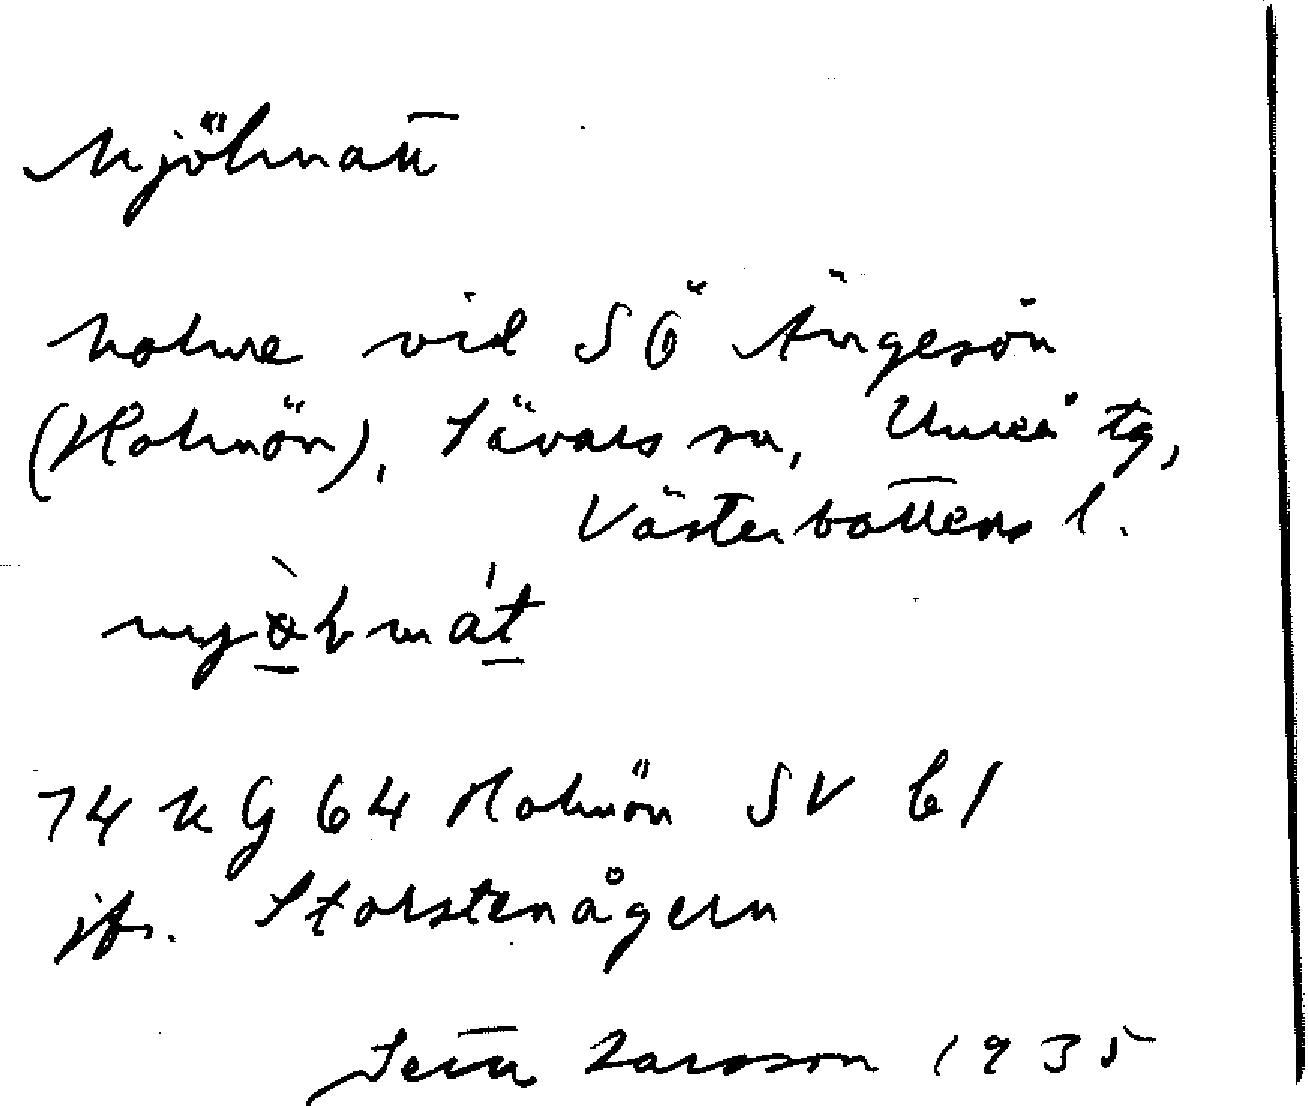 Mjölnatt
holme vid SÖ Ängesön
(Holmön), Sävars sn, Umeå tg,
Västerbottens l.
74 k G 64 Holmön SV b1
jfr. Storstenågern
Larsson 1935